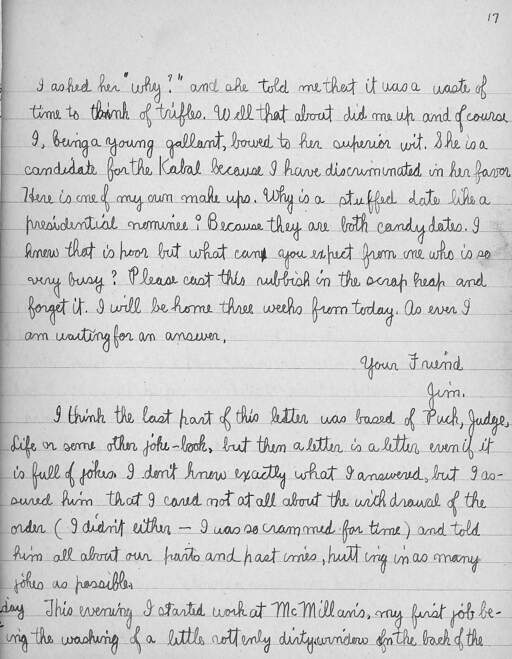 17
I asked her "why?" and she told me that it was a waste of
time to think of trifles. Well that about did me up and of course
I, being a young gallant, bowed to her superior wit. She is a
candidate for the Kabal because I have discriminated in her favor
Here is one of my own make ups. Why is a stuffed date like a
presidential nominee? Because they are both candy dates. I
know that is poor but what can you expect from one who is so
very busy? Please cast this rubbish in the scrap heap and
forget it. I will be home three weeks from today. As ever I
am waiting for an answer.
Your Friend
Jim.
I think the last part of this letter was based of Puck, Judge,
Life or some other joke-book, but then a letter is a letter even if it
is full of jokes. I don't know exactly what I answered, but I as-
sured him that I cared not at all about the withdrawal of the
order (I didn't either — I was so crammed for time) and told
him all about our parts and past ones, putting in as many
jokes as possible.
day This evening I started work at McMillan's, my first job be-
ing the washing of a little rottenly dirty window for the back of the